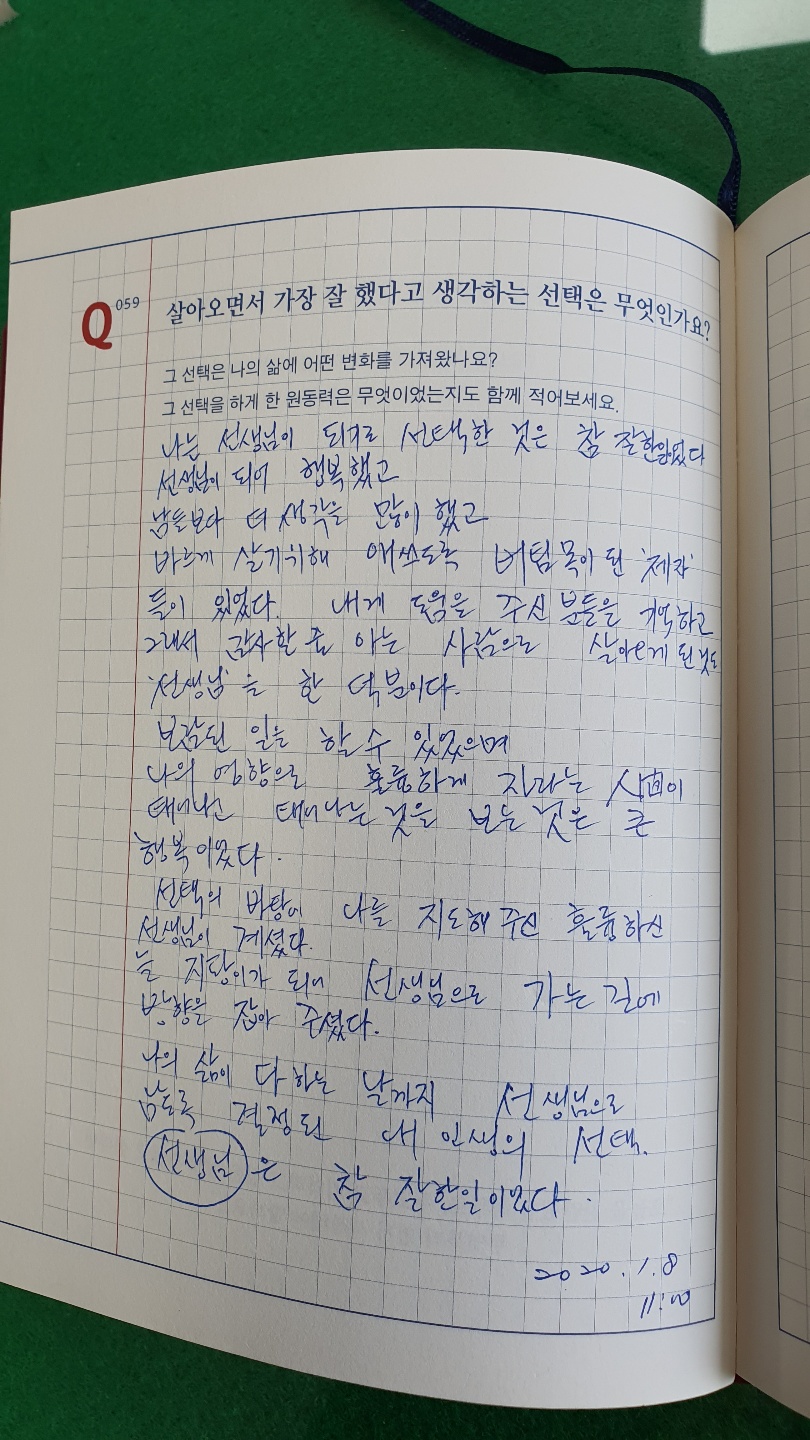 Q059 살아오면서 가장 잘 했다고 생각하는 선택은 무엇인가요?
그 선택은 나의 삶에 어떤 변화를 가져왔나요?
그 선택을 하게 한 원동력은 무엇이었는지도 함께 적어보세요.
나는 선생님이 되기로 선택한 것은 참 잘한일이었다
선생님이 되어 행복했고
남들보다 더 생각을 많이 했고
바르게 살기위해 애쓰도록 버팀목이 된 '제자'
들이 있었다. 내게 도움을 주신 분들을 기억하고
그래서 감사할 줄 아는 사람으로 살아오게 된 것도
'선생님'을 한 덕분이다.
보람된 일을 할 수 있었으며
나의 영향으로 훌륭하게 자라는
태어나는 것을 보는 것은 큰
행복이었다.
선택의 바탕에 나를 지도해 주신 훌륭하신
선생님이 계셨다.
늘 지팡이가 되어 선생님으로 가는 길에
방향을 잡아 주셨다.
나의 삶이 다 하는 날까지 선생님으로
남도록 결정된 내 인생의 선택.
선생님은 참 잘한일이었다.
2020. 1. 8
11:00